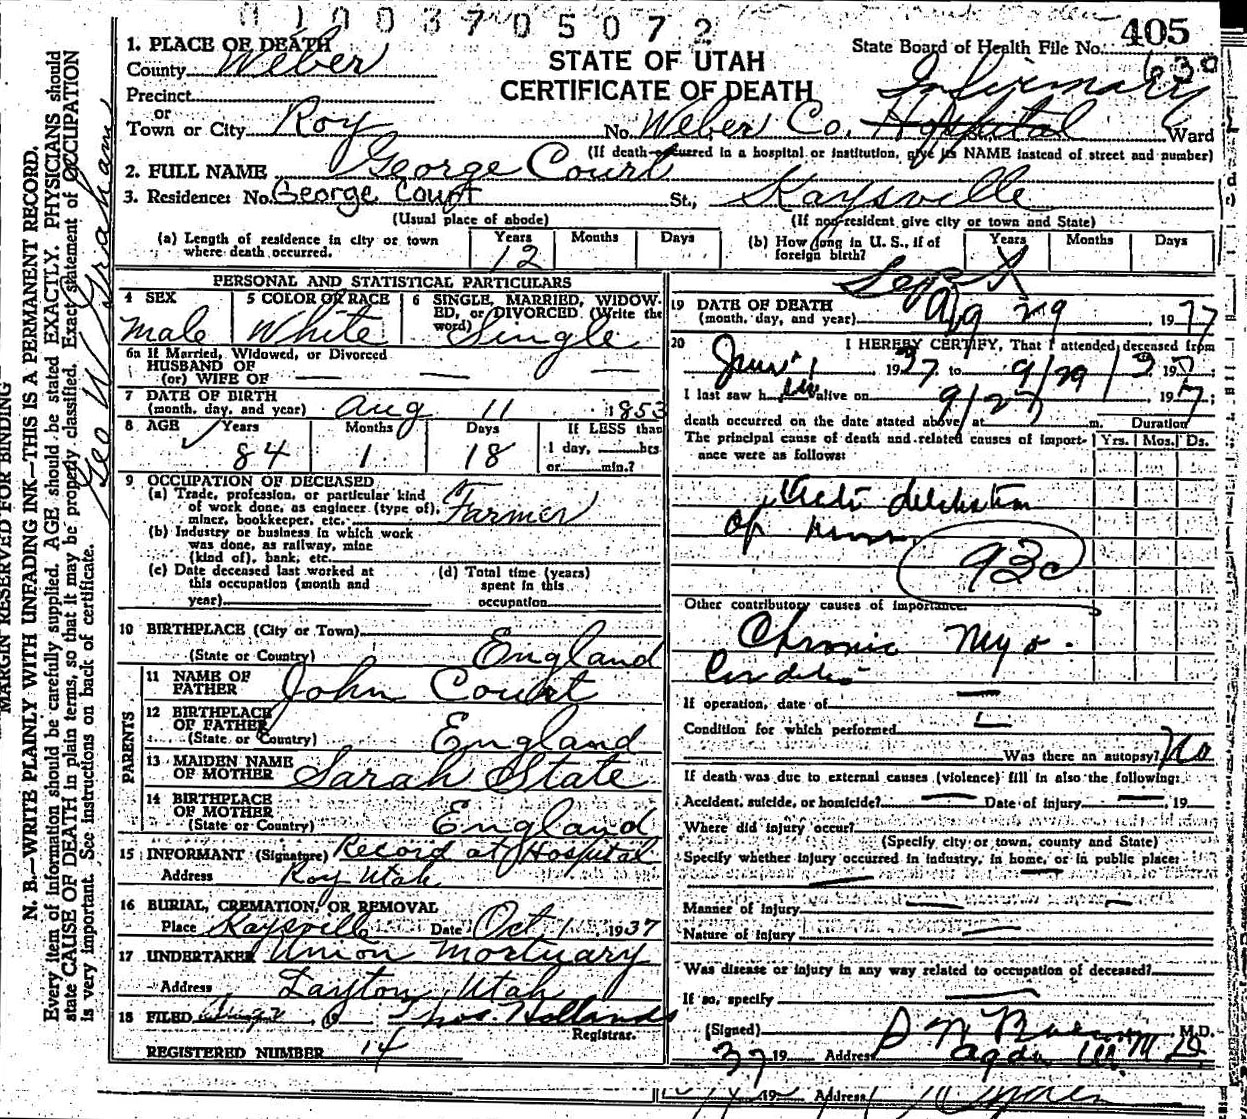 01003705072
405
1. PLACE OF DEATH
County Weber
Precinct
or
Town or City Roy
STATE OF UTAH
CERTIFICATE OF DEATH
State Board of Health File No.
Infirmary
No. Weber Co. Hospital St., Ward
(If death occurred in a hospital or institution, give its NAME instead of street and number)
2. FULL NAME George Court
3. Residence: No. George Court St., Kaysville
(Usual place of abode) (If non-resident give city or town and State)
(a) Length of residence in city or town where death occurred. Years 12 Months Days
(b) How long in U. S., if of foreign birth? Years Months Days
PERSONAL AND STATISTICAL PARTICULARS
4 SEX male
5 COLOR OR RACE White
6 SINGLE, MARRIED, WIDOWED, or DIVORCED (Write the word) Single
6a If Married, Widowed, or Divorced
HUSBAND OF
(or) WIFE OF
7 DATE OF BIRTH
(month, day, and year) Aug 11 1853
8 AGE Years 84 Months 1 Days 18 If LESS than 1 day, hrs. or min.?
9 OCCUPATION OF DECEASED
(a) Trade, profession, or particular kind of work done, as engineer (type of), miner, bookkeeper, etc. Farmer
(b) Industry or business in which work was done, as railway, mine (kind of), bank, etc.
(c) Date deceased last worked at this occupation (month and year)
(d) Total time (years) spent in this occupation
10 BIRTHPLACE (City or Town)
(State or Country) England
PARENTS
11 NAME OF FATHER John Court
12 BIRTHPLACE OF FATHER
(State or Country) England
13 MAIDEN NAME OF MOTHER Sarah State
14 BIRTHPLACE OF MOTHER
(State or Country) England
15 INFORMANT (Signature) Record at Hospital
Address Roy Utah
16 BURIAL, CREMATION, OR REMOVAL
Place Kaysville Date Oct 1 1937
17 UNDERTAKER Union Mortuary
Address Layton, Utah
18 FILED Thos. Hollands
Registrar.
REGISTERED NUMBER 14
Sept
19 DATE OF DEATH
(month, day, and year) 29 19
20 I HEREBY CERTIFY, That I attended deceased from
1937 to 9/29/37
I last saw h alive on 9/27 19
death occurred on the date stated above, at m. Duration
The principal cause of death and related causes of importance were as follows: Yrs. Mos. Ds.
of
93c
Other contributory causes of importance:
Chronic Myo-
If operation, date of
Condition for which performed
Was there an autopsy? No
If death was due to external causes (violence) fill in also the following:
Accident, suicide, or homicide? Date of injury , 19
Where did injury occur?
(Specify city or town, county and State)
Specify whether injury occurred in industry, in home, or in public place:
Manner of injury
Nature of injury
Was disease or injury in any way related to occupation of deceased?
If so, specify
(Signed) M.D.
37 19 Address
19 Address Ogden
MARGIN RESERVED FOR BINDING
N. B.—WRITE PLAINLY WITH UNFADING INK—THIS IS A PERMANENT RECORD.
Every item of information should be carefully supplied. AGE should be stated EXACTLY. PHYSICIANS should
state CAUSE OF DEATH in plain terms, so that it may be properly classified. Exact statement of OCCUPATION
is very important. See instructions on back of certificate.
Geo W Graham